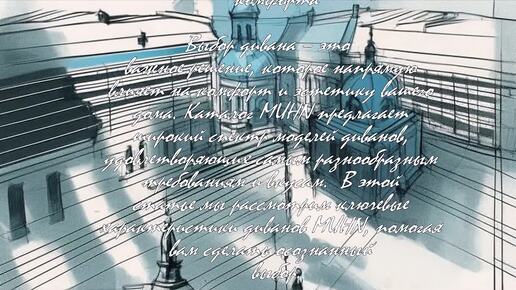 комфорта
Выбор дивана – это
важное решение, которое напрямую
влияет на комфорт и эстетику вашего
дома. Каталог MUHN предлагает
широкий спектр моделей диванов,
удовлетворяющих самым разнообразным
требованиям и вкусам. В этой
статье мы рассмотрим ключевые
характеристики диванов MUHN, помогая
вам сделать осознанный
выбор.